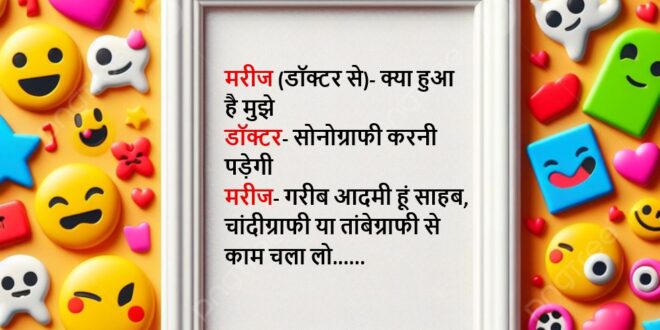 मरीज (डॉक्टर से)- क्या हुआ
है मुझे
डॉक्टर- सोनोग्राफी करनी
पड़ेगी
मरीज- गरीब आदमी हूं साहब,
चांदीग्राफी या तांबेग्राफी से
काम चला लो......